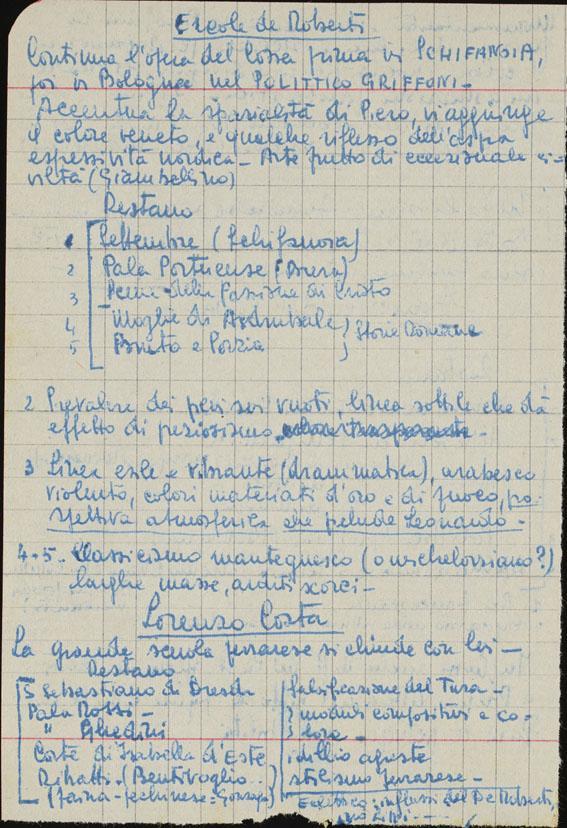 Ercole de Roberti
Continua l'opera del Cossa prima in SCHIFANOIA,
poi in Bologna nel POLITTICO GRIFFONI -
Accentua la spazialità di Piero, vi aggiunge
il colore veneto, e qualche riflesso dell'aspra
espressività nordica - Arte frutto di eccezionale ci-
viltà (Giambellino)
Restano
1 Settembre (Schifanoia)
2 Pala Portuense (Brera)
3 Scene della Passione di Cristo
4 Moglie di Asdrubale } Storie Romane
5 Bruto e Porzia
2 Prevalere dei pieni sui vuoti, linea sottile che dà
effetto di preziosismo -
3 Linea esile e vibrante (drammatica), arabesco
violento, colori materiati d'oro e di fuoco, pro-
spettiva atmosferica che prelude Leonardo -
4-5- Classicismo mantegnesco (o michelorziano?)
larghe masse, arditi scorci -
Lorenzo Costa
La grande scuola ferrarese si chiude con lui -
Restano
S Sebastiano di Dresda falsificazione del Tura -
Pala Rossi - } moduli compositivi e co-
" Ghedini } lore -
Corte di Isabella d'Este idillio agreste
Ritratti (Bentivoglio..) stilismo ferrarese -
Eclettico: influssi del De Roberti,